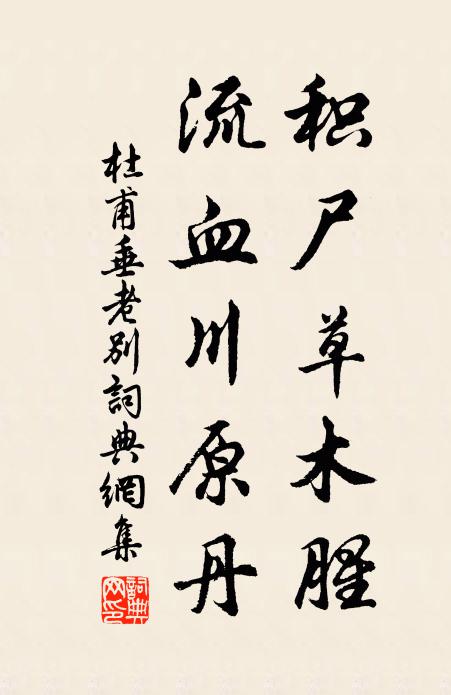 积尸草木腥
流血川原丹
杜甫垂老别詞典網集
詞典网印